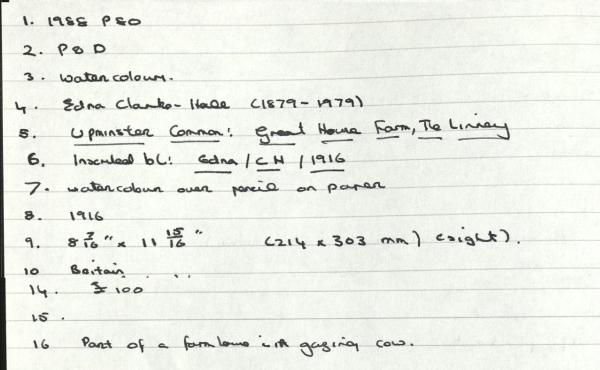 1. 1988 P&O
2. P & D
3. Watercolours.
4. Edna Clarke-Hall (1879-1979)
5. Upminster Common: Great House Farm, The Linney
6. Inscribed bl: Edna / C H / 1916
7. Watercolour over pencil on paper
8. 1916
9. 8 7/16" x 11 15/16" (214 x 303 mm) (sight).
10 Britain
14. £ 100
15.
16 Part of a farm house with gazing cow.